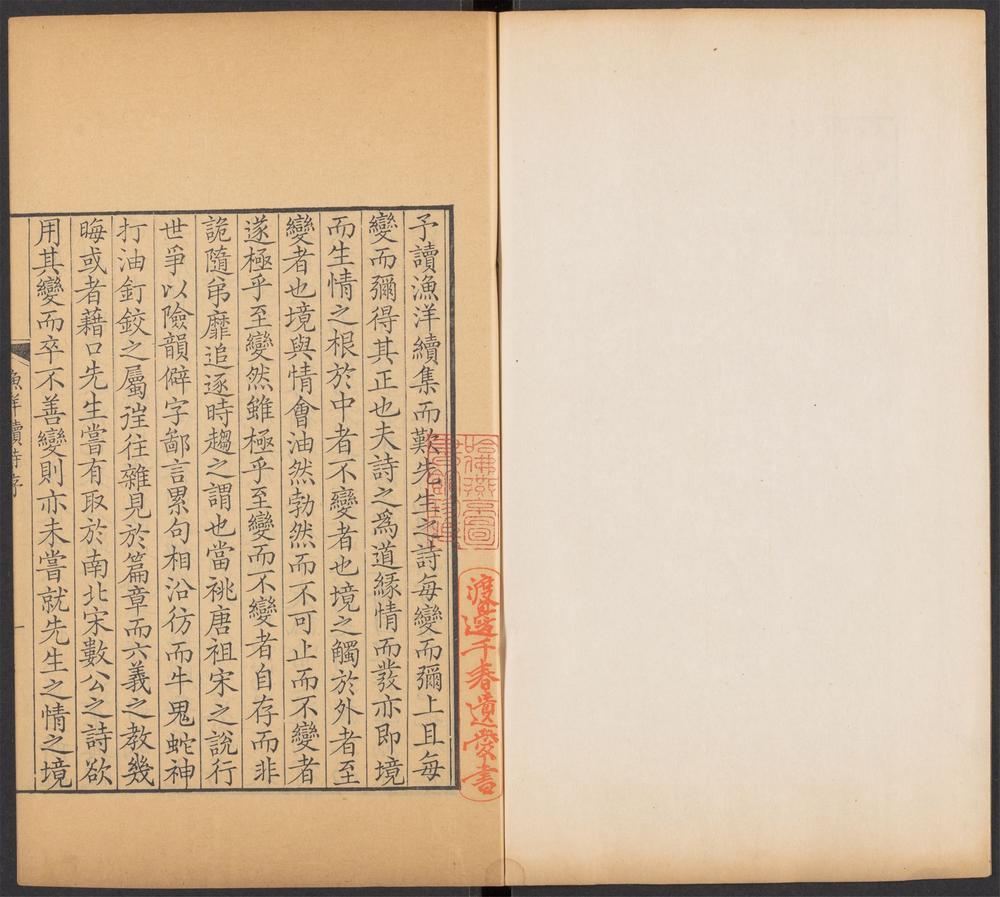 予讀漁洋續集而歎先生之詩每變而彌上且每
變而彌得其正也夫詩之爲道緣情而發亦即境
而生情之根於中者不變者也境之觸於外者至
變者也境與情會油然勃然而不可止而不變者
遂極乎至變然雖極乎至變而不變者自存而非
詭隨弟靡追逐時趨之謂也當祧唐祖宋之說行
世爭以險韻僻字鄙言累句相沿彷而牛鬼蛇神
打油釘鉸之屬徃往雜見於篇章而六義之教幾
晦或者藉口先生嘗有取於南北宋數公之詩欲
用其變而卒不善變則亦未嘗就先生之情之境
漁洋續詩序
一
哈佛燕京圖
書館珍藏
渡邊千春遺愛書